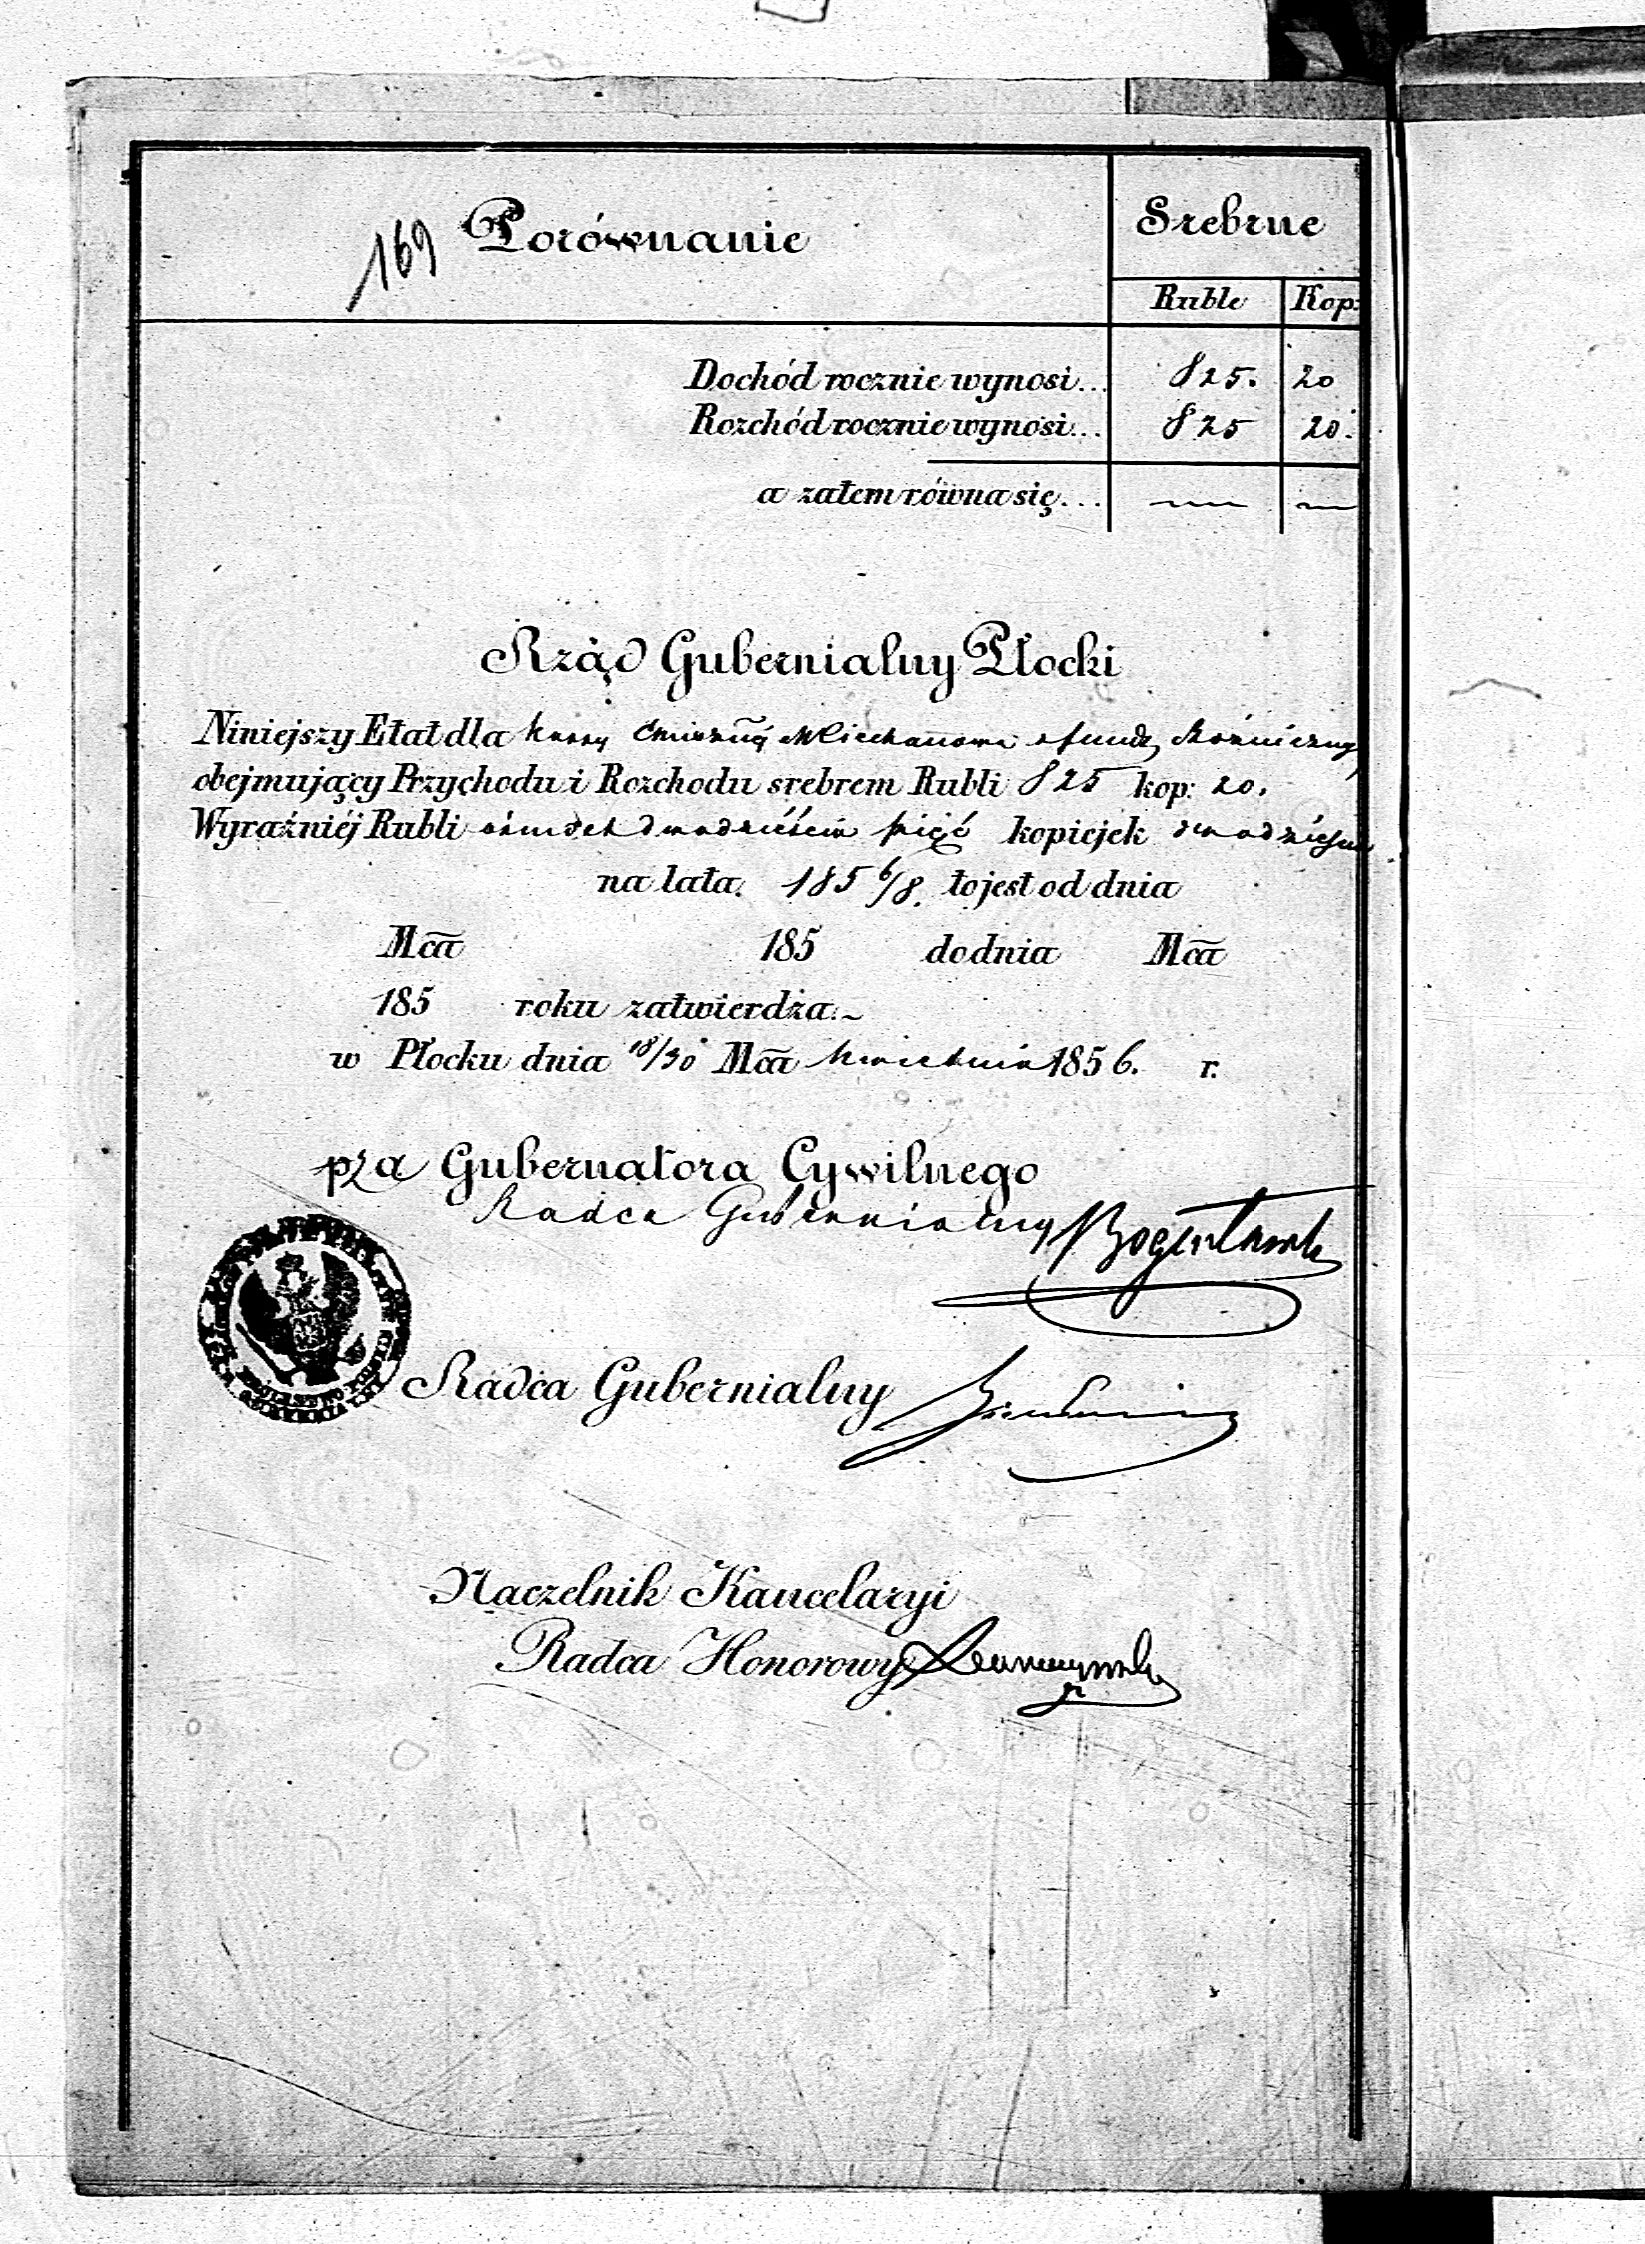 169 Porównanie
Srebrne
Ruble Kop:
Dochód rocznie wynosi... 825. 20
Rozchód rocznie wynosi... 825 20.
a zatem równa się... — —
Rząd Gubernialny Płocki
Niniejszy Etat dla Kassy Ciechanowa z fundu
obejmujący Przychodu i Rozchodu srebrem Rubli 825 kop: 20.
Wyraźniéj Rubli ośmset dwadzieścia pięć kopiejek dwadzieścia
na lata. 185 6/8. to jest od dnia
Mca 185 do dnia Mca
185 roku zatwierdza.~
w Płocku dnia 18/30 Mca Kwietnia 1856. r.
pza Gubernatora Cywilnego
Radca Gubernialny Bogusławski
Radca Gubernialny
Naczelnik Kancelaryi
Radca Honorowy